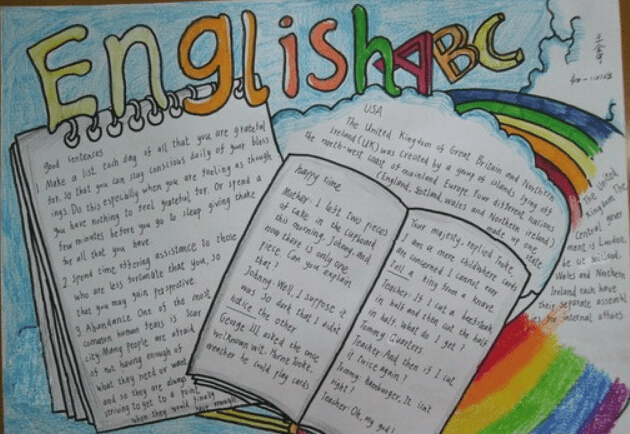 English ABC
good sentences
1. Make a list each day of all that you are grateful
for. So that you can stay conscious daily of your bless
ings. Do this especially when you are feeling as though
you have nothing to feel grateful for. Or spend a
few minutes before you go to sleep giving thake
for all that you have
2. Spend time offering assistance to those
who are less fortunate that you, so
that you may gain perspective.
3. Abundance One of the most
common human fears is scar
city. Many people are afraid
of not having enough of
what they need or want
and so they are always
striving to get to a point
when they would finally
have enough
USA
The United Kingdom of Great Britain and Northern
Ireland (UK) was created by a group of islands lying off
the north-west coast of mainland Europe. Four different nations
(England, Scotland, wales and Northern ireland)
made up one
state
happy time
Mother: I left two pieces
of cake in the cupboard
this morning, Johnny. And
now there is only one
piece. Can you explain
that?
Johnny: Well, I suppose it
was so dark that I didn't
notice the other
George III, asked the once
wellknown wit. Horne Tooke,
weather he could play cards
Your majesty, replied Tooke,
I am a mere child where cards
are concerned I cannot even
tell a king from a knave
Teacher: If I cut a beefsteak
in half and then cut the half
in half. What do I get?
Tommy: Quarters.
Teacher: And then if I cut
it twice again?
Tommy: Hamburger. It isn't
right!
Teacher: Oh, my god!
The United
Kingdom The
Central gover
ment is London,
Wales and Northern
Ireland each have
their separate assembl
ies for internal affairs.